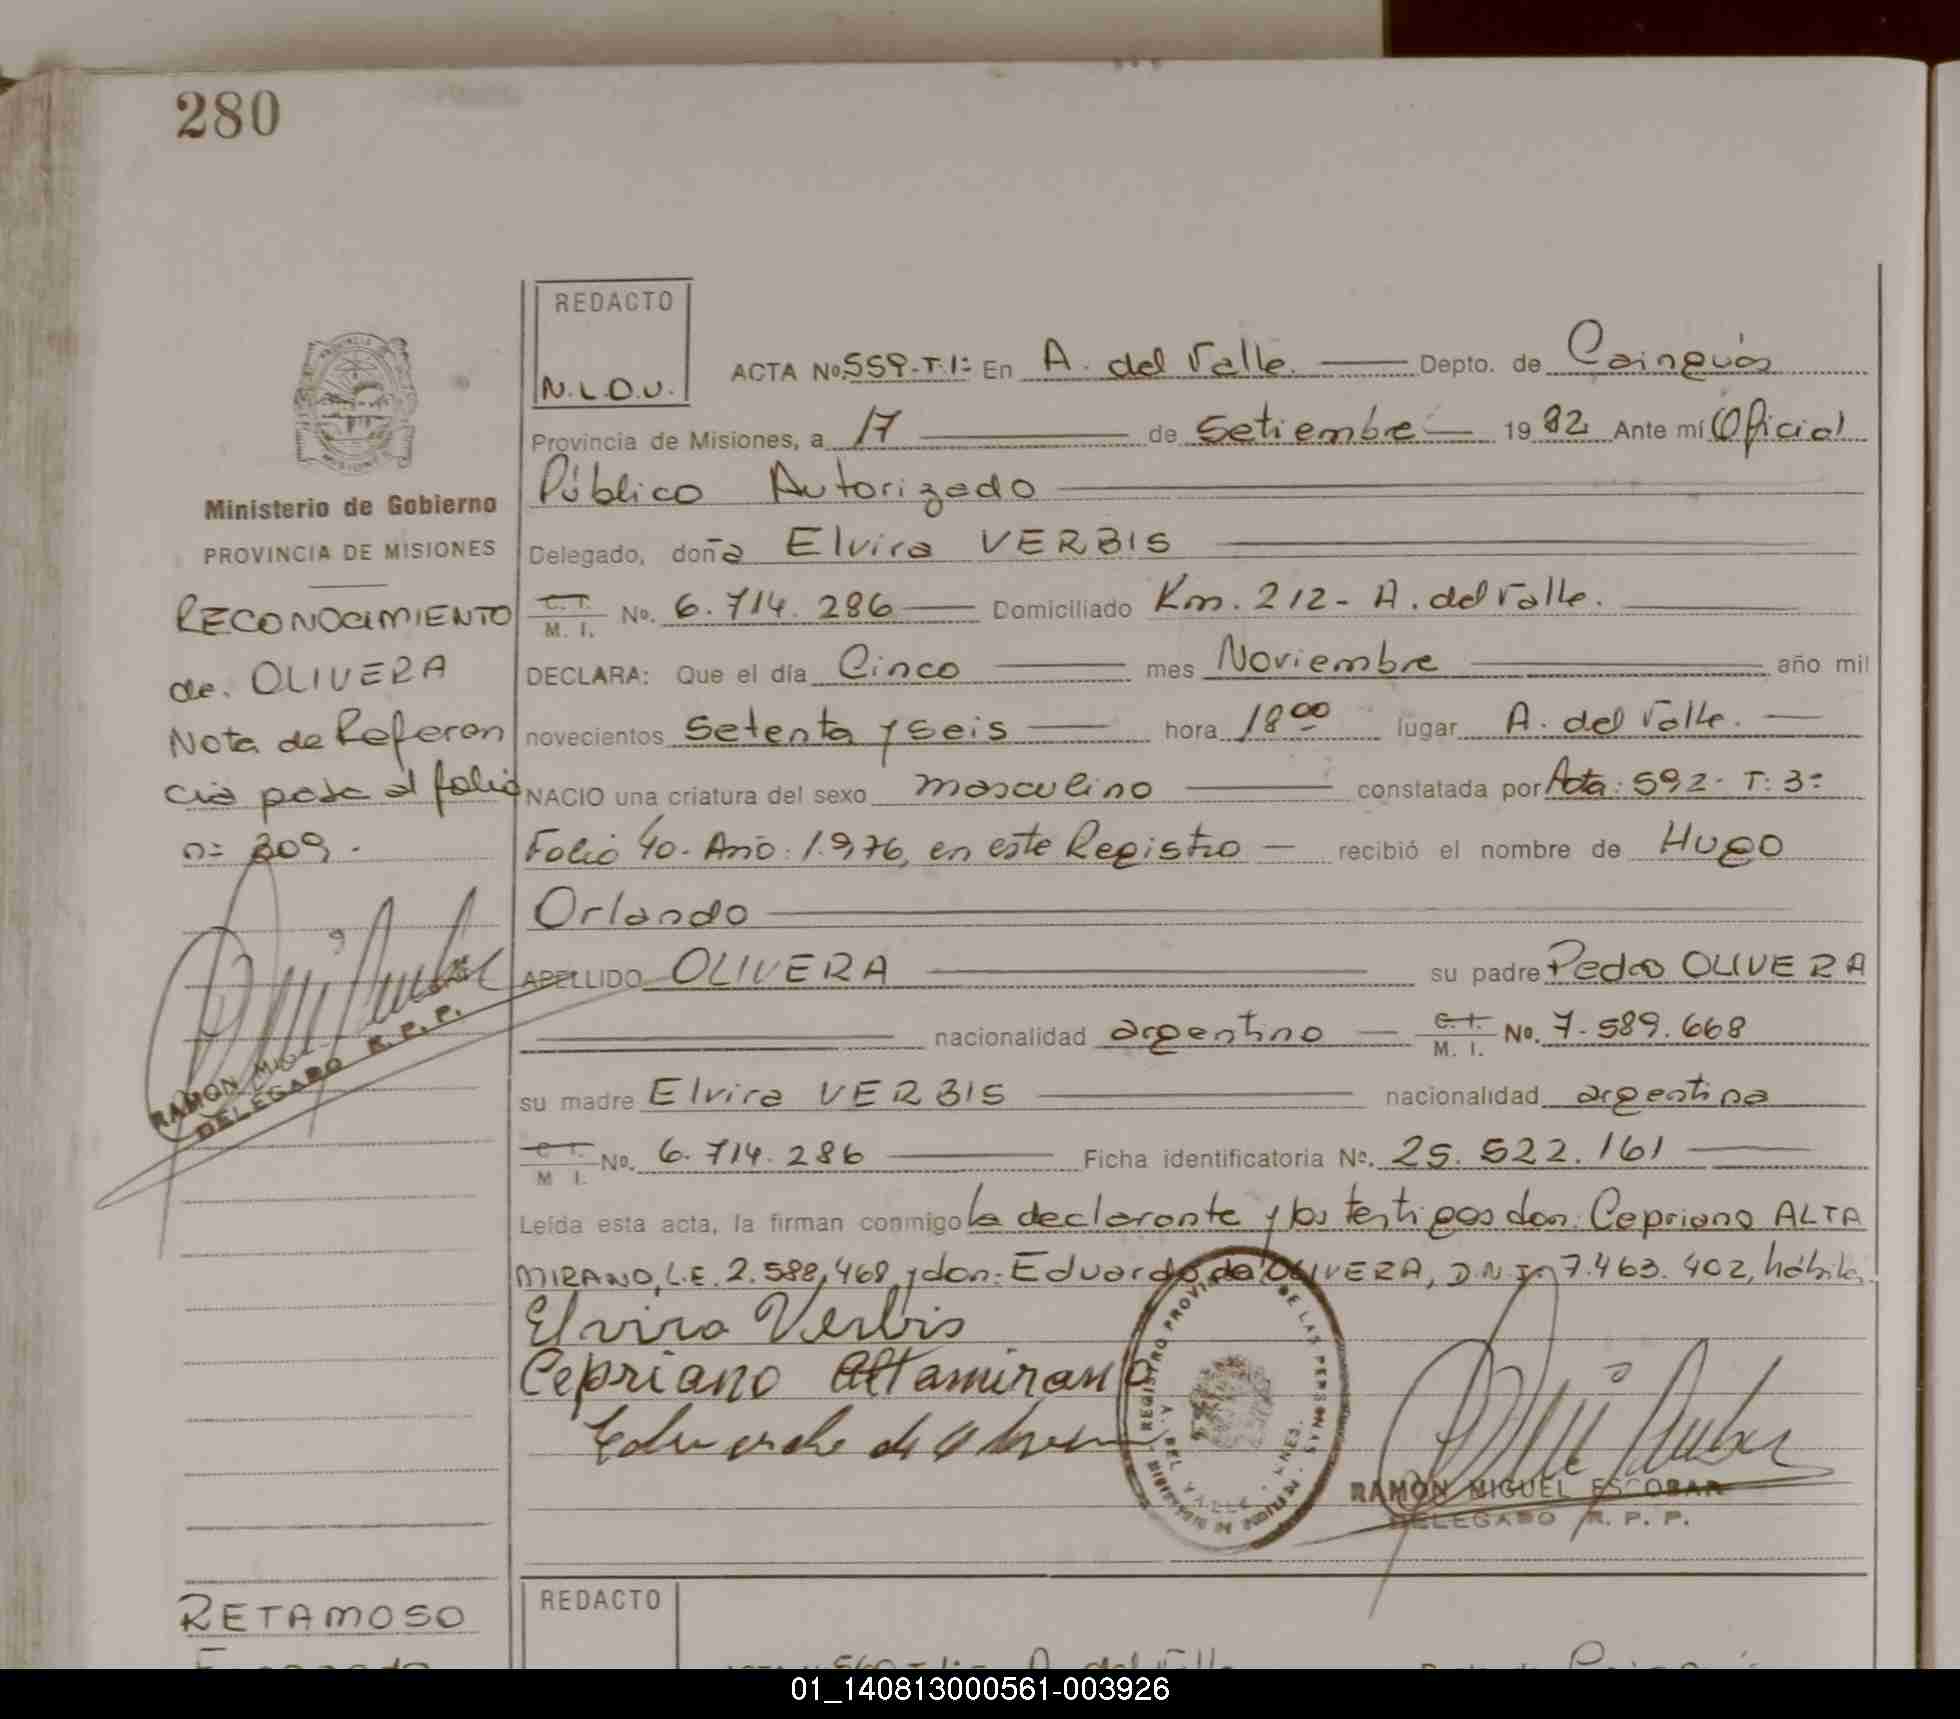 280
REDACTO
N.L.O.U.
ACTA No. 559-T.1= En A. del Valle. Depto. de Cainguás
Provincia de Misiones, a 17 de Setiembre 1982 Ante mí Oficial
Público Autorizado
Ministerio de Gobierno
PROVINCIA DE MISIONES
Delegado, doña Elvira VERBIS
RECONOCIMIENTO
C.I. M. I. No. 6.714.286 Domiciliado Km. 212- A. del Valle.
de. OLIVERA
DECLARA: Que el día Cinco mes Noviembre año mil
Nota de Referen
novecientos setenta y seis hora 18 00 lugar A. del Valle.
cia pasa al folio
NACIO una criatura del sexo masculino constatada por Acta: 592- T: 3=
n= 309.
Folio 40- Año: 1.976, en este Registro recibió el nombre de Hugo
Orlando
APELLIDO OLIVERA su padre Pedro OLIVERA
nacionalidad argentino C.I. M. I. No. 7.589.668
RAMON MIG
DELEGADO R. P. P.
su madre Elvira VERBIS nacionalidad argentina
C.I. M I. No. 6.714.286 Ficha identificatoria No. 25.522.161
Leída esta acta, la firman conmigo la declarante y los testigos don: Cepriano ALTA
MIRANO, L.E. 2.588,468, y don: Eduardo de OLIVERA, D.N.I. 7.463.402, hábiles.
Elvira Verbis
Cepriano Altamirano
Eduardo de Olivera
REGISTRO PROVINCIAL DE LAS PERSONAS
RAMON MIGUEL ESCOBAR
DELEGADO R. P. P.
RETAMOSO
REDACTO
01_140813000561-003926